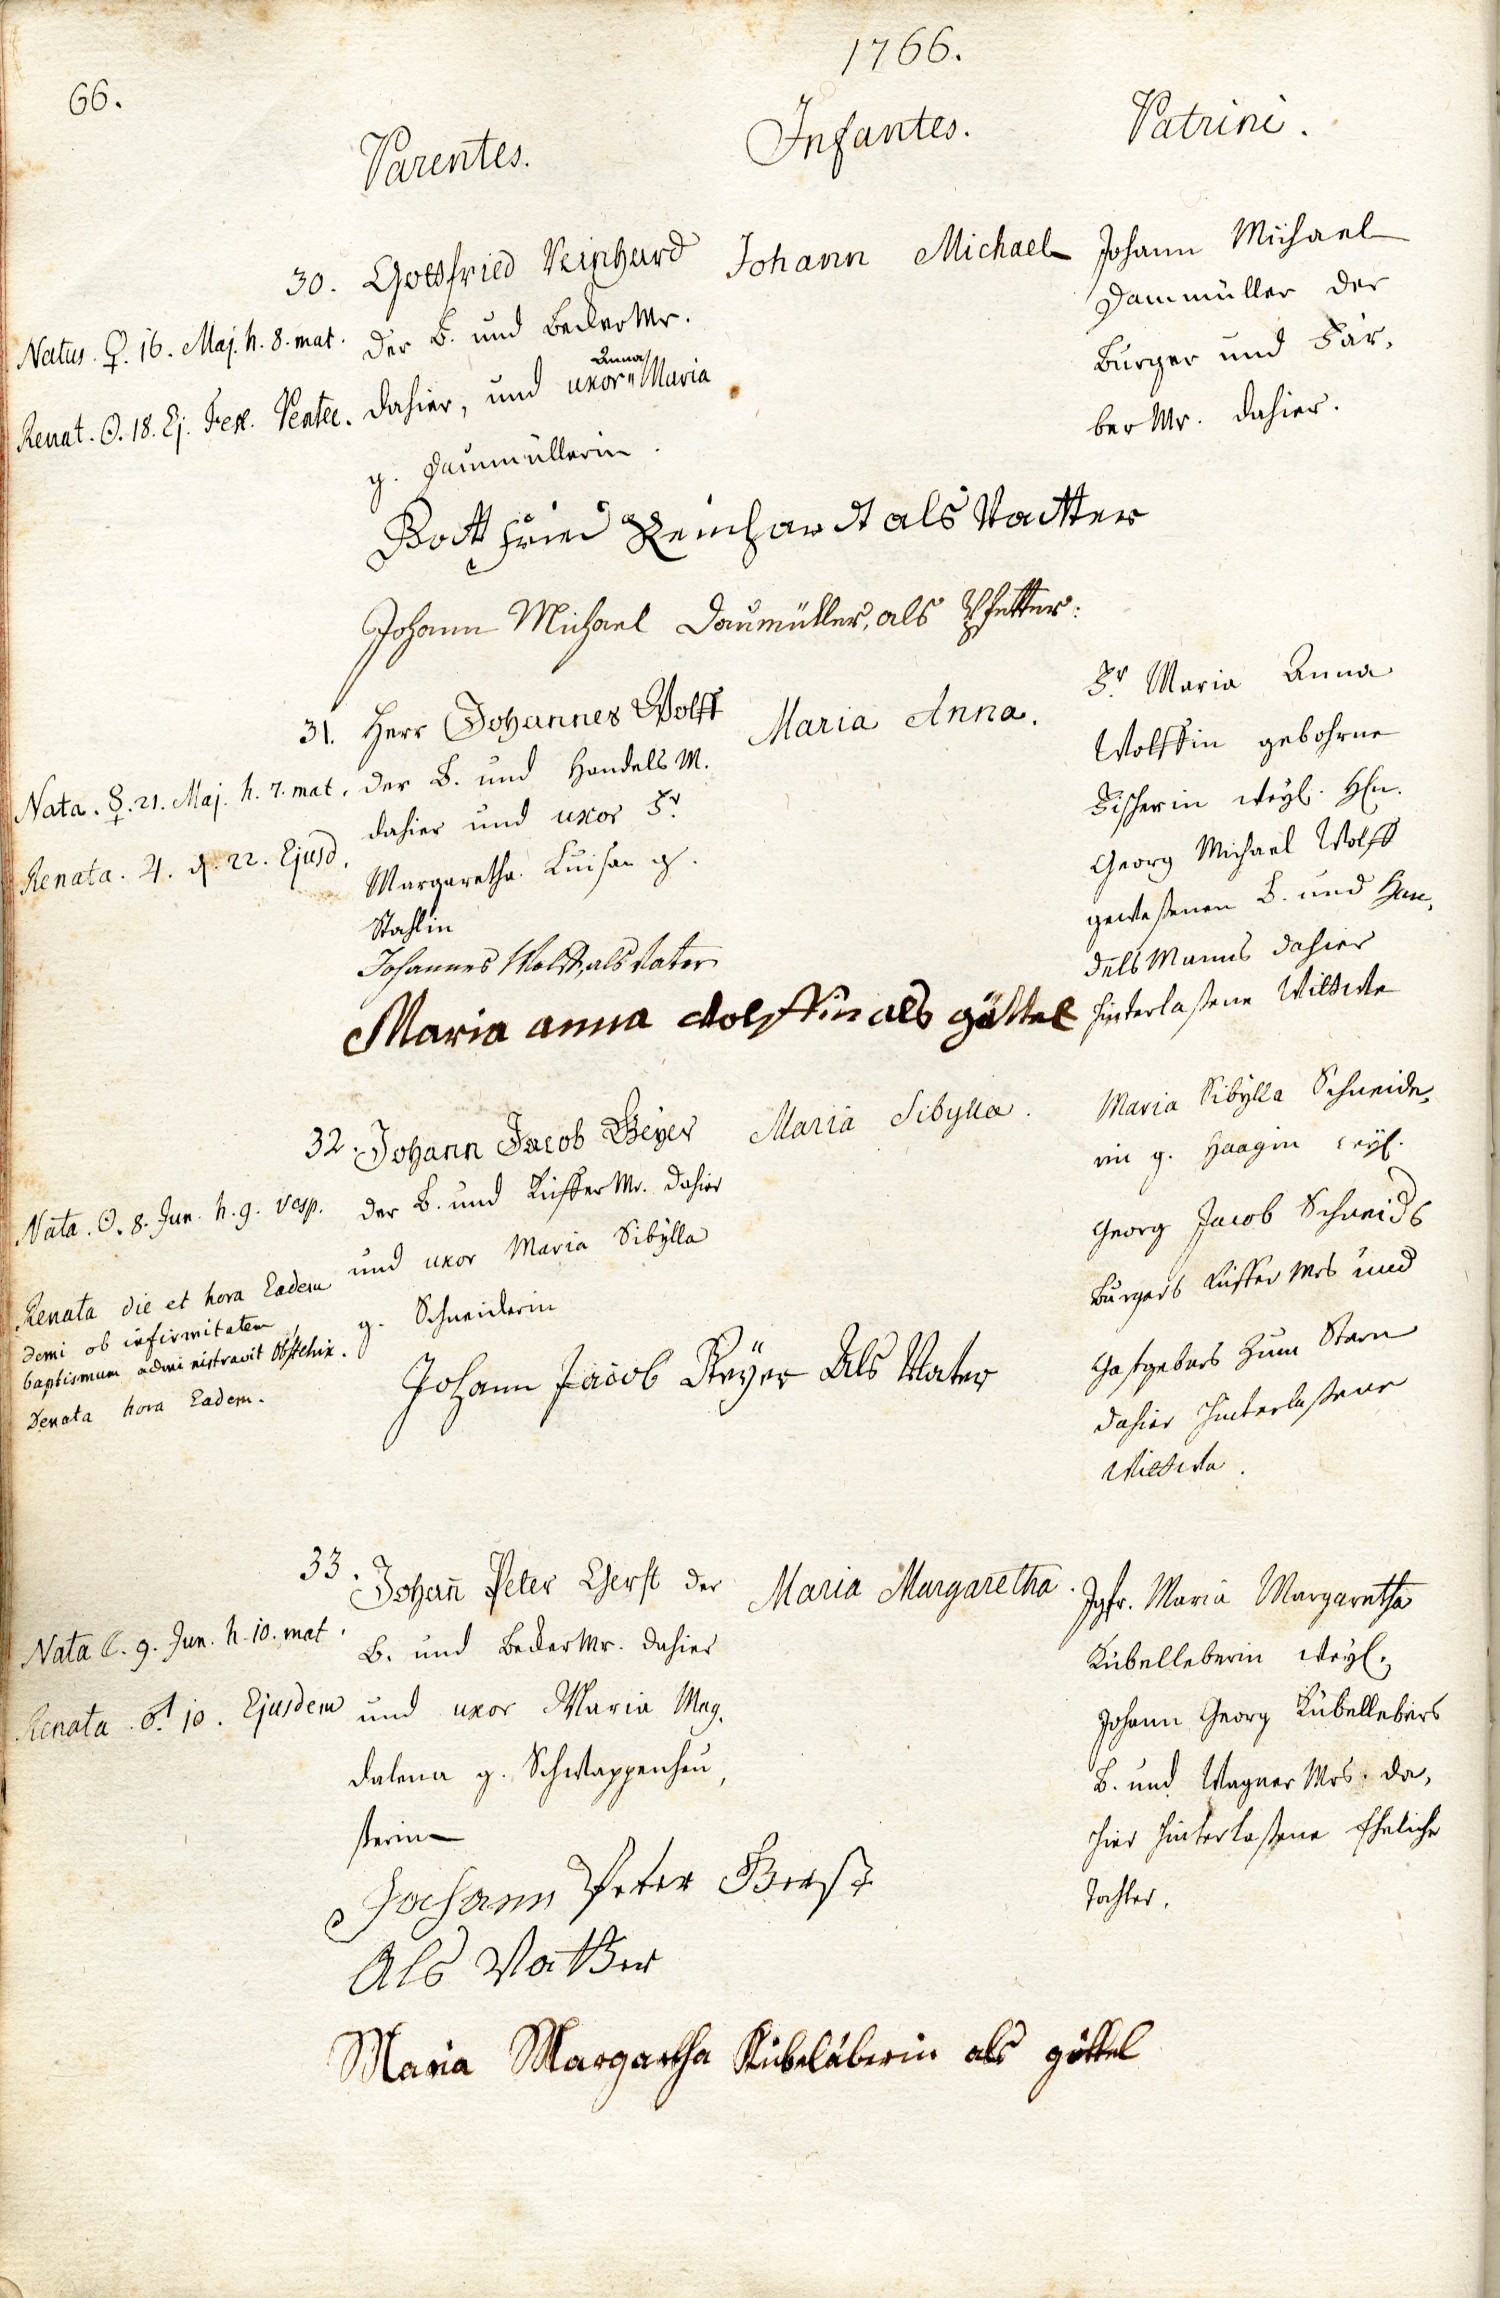 66.
1766.
Parentes.
Infantes.
Patrini.
30.
Natus. ♀. 16. Maj. h. 8. mat.
Renat. ☉. 18. Ej. Fer. Pentec.
Gottfried Reinhard
der B. und Becker Mr.
Anna
dahier, und uxor " Maria
g. Daumüllerin.
Johann Michael
Johann Michael
Daumüller der
Burger und Fär,
ber Mr. dahier.
Gottfried Reinhardt als Vatter
Johann Michael Daumüller, als Pfetter:
31.
Nata. ☿. 21. Maj. h. 7. mat.
Renata. ♃. d. 22. Ejusd.
Herr Johannes Wolff
der B. und Handels M.
dahier und uxor Fr.
Margaretha Luisa g.
Stahlin
Maria Anna.
Fr. Maria Anna
Wolffin gebohrne
Fischerin weyl. Hn.
Georg Michael Wolff
geweßenen B. und Han,
delsManns dahier
hinterlaßene Wittwe
Johannes Wolff, als Vater
Maria anna Wolffin als göttel
32.
Nata. ☉. 8. Jun. h. 9. vesp.
Renata die et hora Eadem
demi ob infirmitatem
baptismum administravit Obstetrix.
Denata hora Eadem.
Johann Jacob Geyer
der B. und Kuffer Mr. dahier
und uxor Maria Sibylla
g. Schneiderin
Maria Sibylla.
Maria Sibylla Schneide,
rin g. Haagin weyl.
Georg Jacob Schneids
Burgers Kuffer Mrs und
Gastgebers zum Stern
dahier hinterlaßene
Wittwe.
Johann Jacob Geyer Als Vater
33.
Nata ☾. 9. Jun. h. 10. mat.
Renata. ♂. 10. Ejusdem
Johan̄ Peter Gerst der
B. und Becker Mr. dahier
und uxor Maria Mag,
dalena g. Schwappenheu,
ßerin
Maria Margaretha.
Jgfr. Maria Margaretha
Kübelleberin weyl.
Johann Georg Kübellebers
B. und Wagner Mrs. da,
hier hinterlaßene Eheliche
Tochter.
Johann Peter Gerst
Als Vatter
Maria Margartha Kübeläberin als göttel